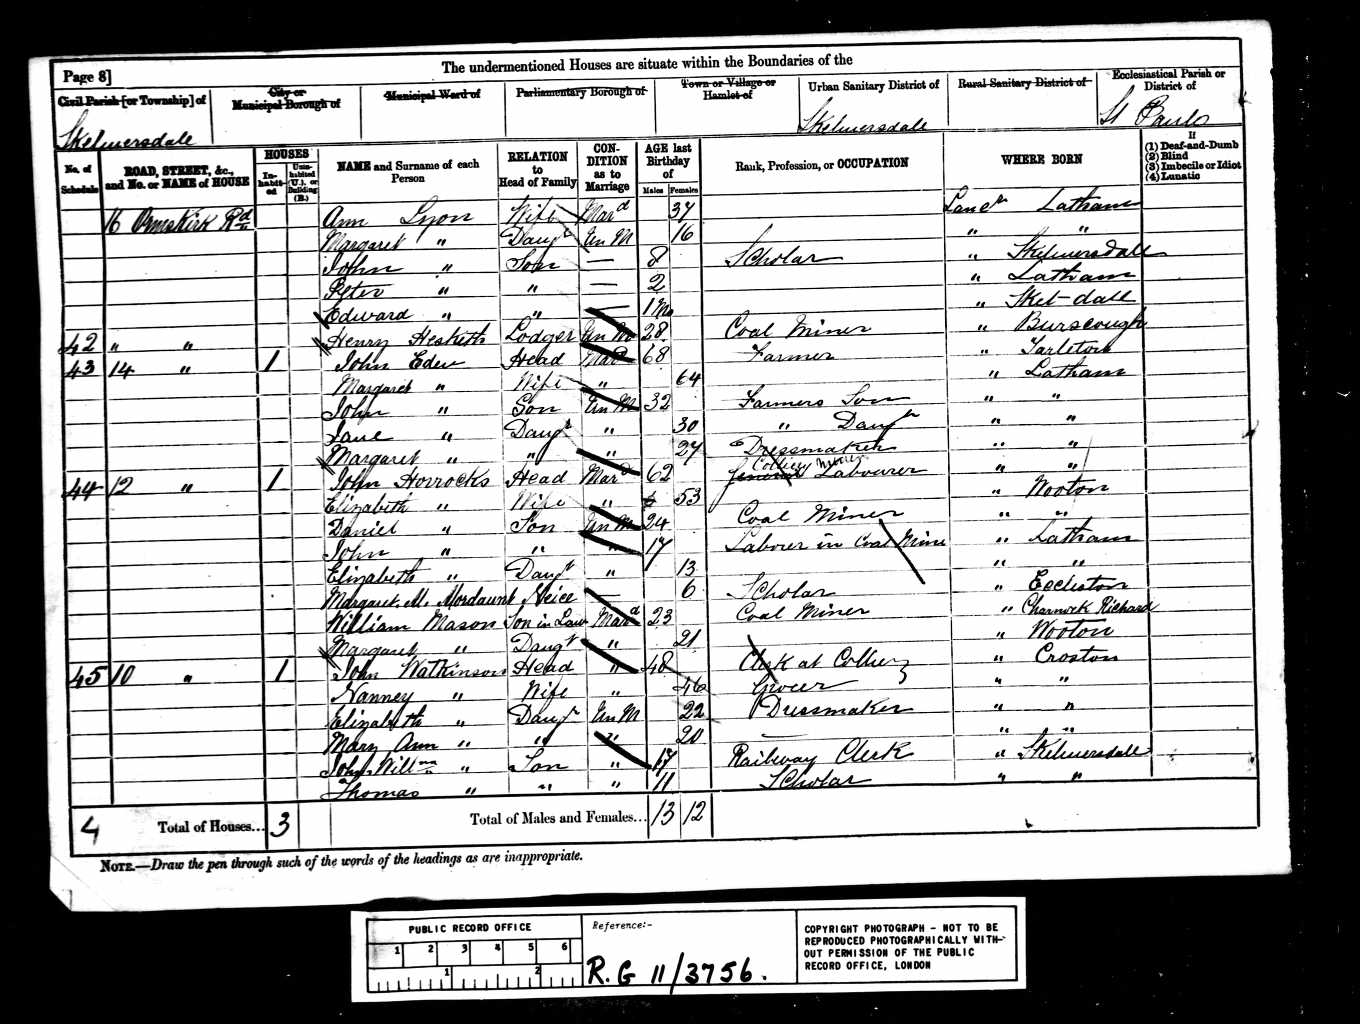 Page 8] The undermentioned Houses are situate within the Boundaries of the
Civil Parish [or Township] of City or Municipal Borough of Municipal Ward of Parliamentary Borough of Town or Village or Hamlet of Urban Sanitary District of Rural Sanitary District of Ecclesiastical Parish or District of
Skelmersdale Skelmersdale St Pauls
No. of Schedule ROAD, STREET, &c., and No. or NAME of HOUSE HOUSES Inhabited Uninhabited (U.), or Building (B.) NAME and Surname of each Person RELATION to Head of Family CONDITION as to Marriage AGE last Birthday of Males Females Rank, Profession, or OCCUPATION WHERE BORN If (1) Deaf-and-Dumb (2) Blind (3) Imbecile or Idiot (4) Lunatic
16 Ormskirk Rd Ann Lyon Wife Mard 37 Lanc Latham
Margaret " Daugr Un M 16 " "
John " Son — 8 Scholar " Skelmersdale
Peter " " — 2 " Latham
Edward " " — 1 Mo " Skel-dale
42 " " Henry Hesketh Lodger 28 Coal Miner " Burscough
43 14 " 1 John Head Mard 68 Farmer " Tarleton
Margaret " Wife " 64 " Latham
John " Son Un M 32 Farmers Son " "
Jane " Daugr " 30 " Daugr " "
Margaret " " " 27 Dressmaker " "
44 12 " 1 John Horrocks Head Mard 62 Colliery Labourer " "
Elizabeth " Wife " 53 " Wooton
Daniel " Son Un M 24 Coal Miner " "
John " " 17 Laborer in Coal Mine " Latham
Elizabeth " Daugr " 13 " "
Margaret. M. Mordaunt Neice — 6 Scholar " Eccleston
William Mason Son in Law Mard 23 Coal Miner " Charnock Richard
Margaret " Daugr " 21 " Wooton
45 10 " 1 John Watkinson Head " 48 Clerk at Colliery " Croston
Nanney " Wife " 46 Grocer " "
Elizabeth " Daugr Un M 22 Dressmaker " "
Mary Ann " " " 20 — " "
John Willm " Son " 17 Railway Clerk " Skelmersdale
Thomas " " " 11 Scholar " "
4 Total of Houses... 3 Total of Males and Females... 13 12
NOTE.—Draw the pen through such of the words of the headings as are inappropriate.
PUBLIC RECORD OFFICE
1 2 3 4 5 6
1 2
Reference:-
R.G 11/3756.
COPYRIGHT PHOTOGRAPH - NOT TO BE
REPRODUCED PHOTOGRAPHICALLY WITH-
OUT PERMISSION OF THE PUBLIC
RECORD OFFICE, LONDON